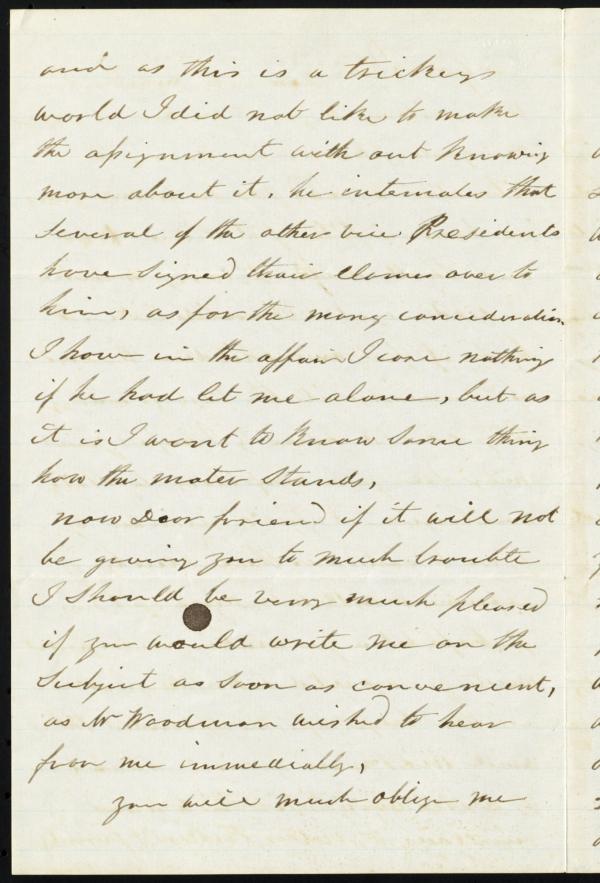 and as this is a trickey
world I did not like to make
the assignment with out knowing
more about it, he intemates that
several of the other vice Presidents
have signed thair clames over to
him, as for the mony concideration
I have in the affair I care nothing
if he had let me alone, but as
it is I want to know some thing
how the mater stands,
now Dear friend if it will not
be giveing you to much trouble
I should be very much pleased
if you would write me on the
subject as soon as convenient,
as Mr Woodman wished to hear
from me immedially,
you will much oblige me